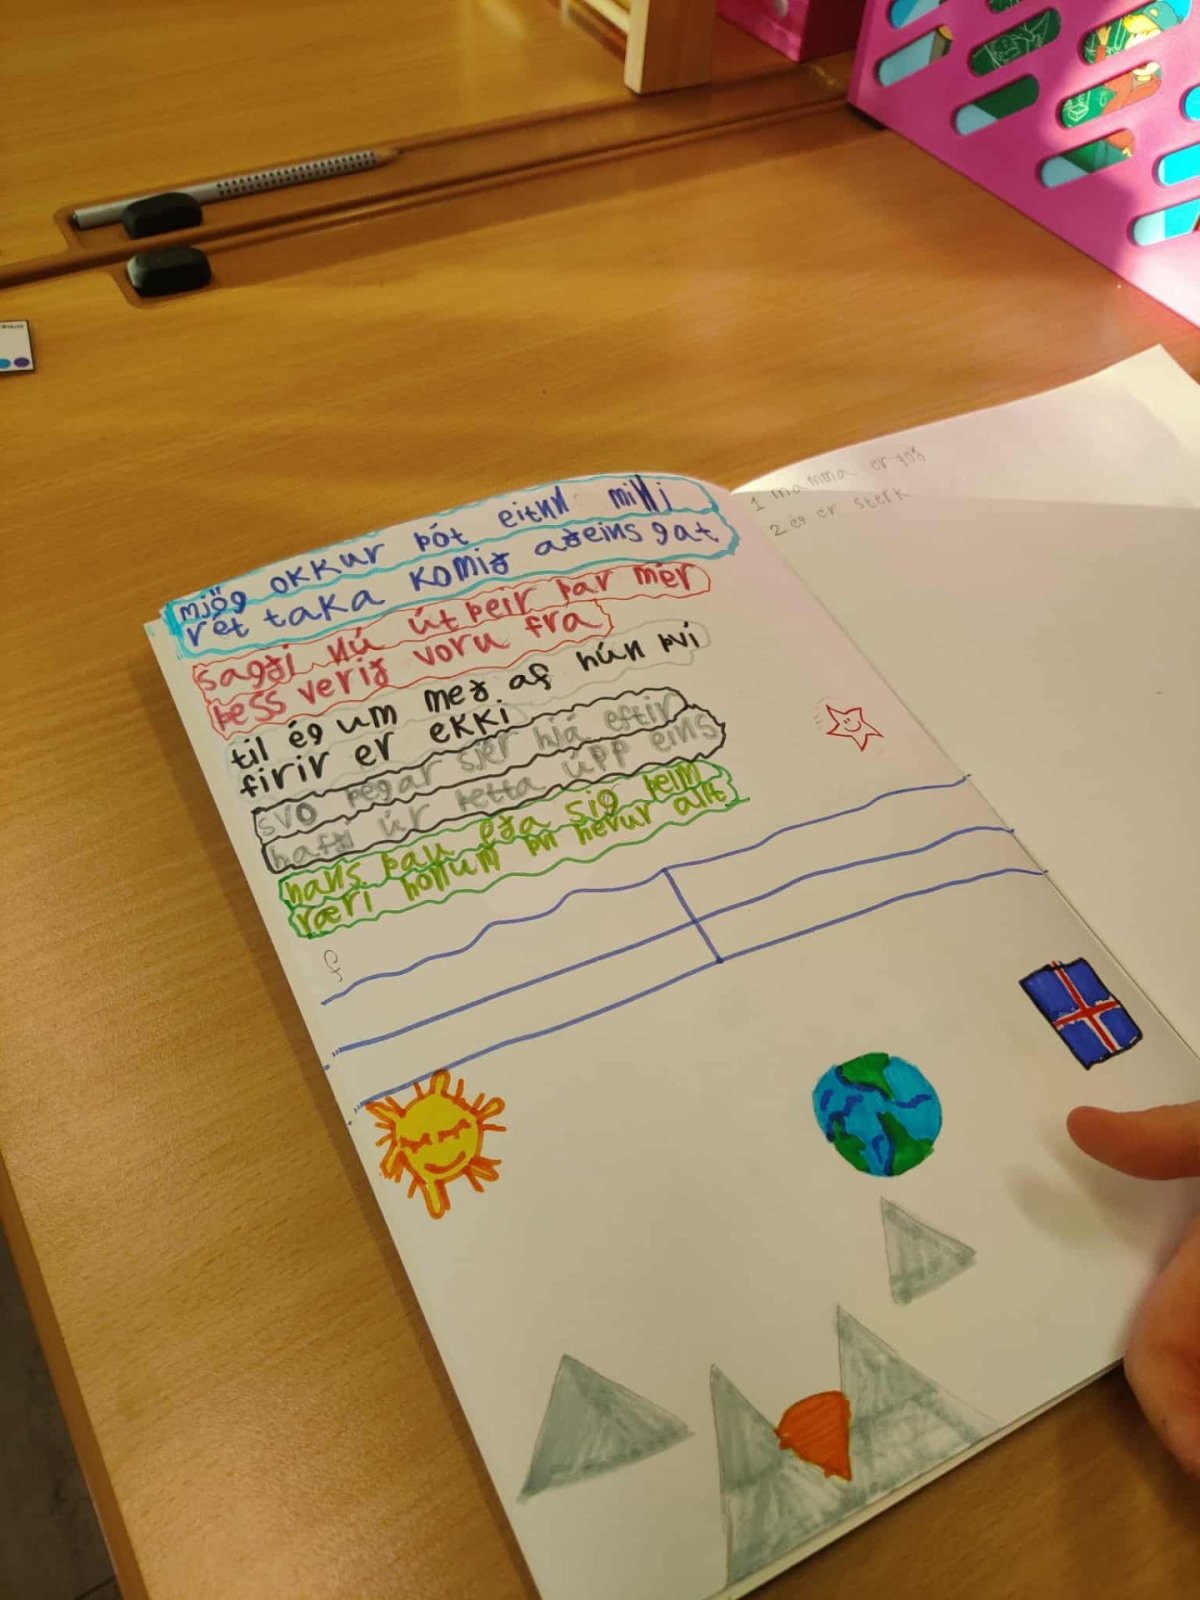 mjög okkur þót eitnn milli
rét taka komið aðeins gat
sagði nú út þeir þar mér
þess verið voru fra
til ég um með af hún því
firir er ekki
svo þegar sjer hjá eftir
hafði úr þetta úpp eins
hans þau eða sig þeim
væri honum þvi hevur allt
1 mamma er goð
2 ég er sterk